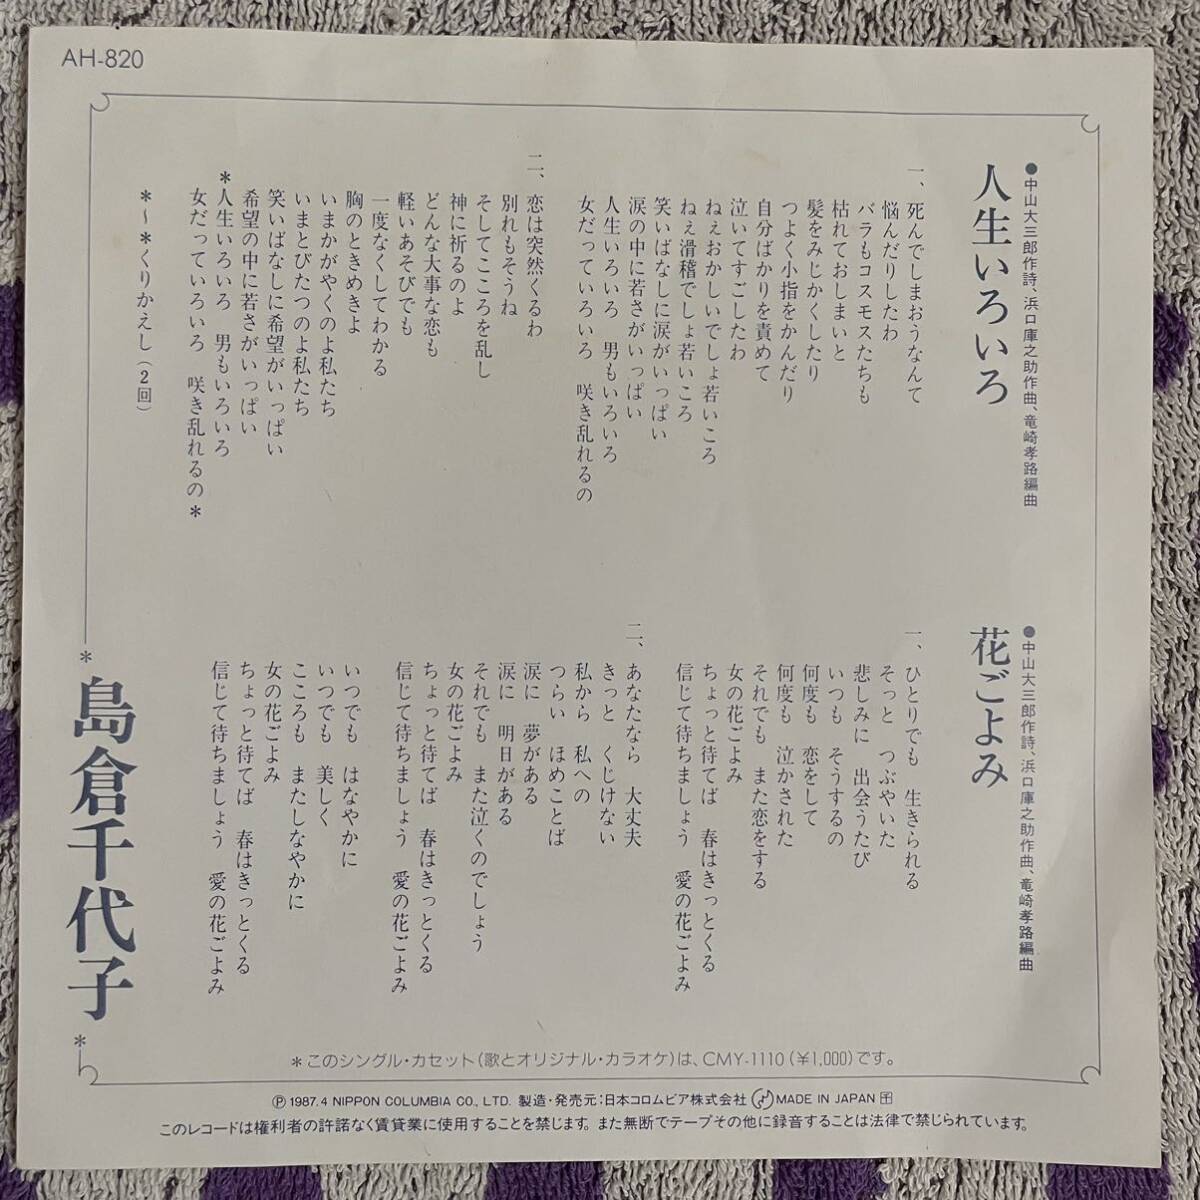 AH-820
人生いろいろ
●中山大三郎作詩、浜口庫之助作曲、竜崎孝路編曲
一、死んでしまおうなんて
悩んだりしたわ
バラもコスモスたちも
枯れておしまいと
髪をみじかくしたり
つよく小指をかんだり
自分ばかりを責めて
泣いてすごしたわ
ねぇおかしいでしょ若いころ
ねぇ滑稽でしょ若いころ
笑いばなしに涙がいっぱい
涙の中に若さがいっぱい
人生いろいろ 男もいろいろ
女だっていろいろ 咲き乱れるの
二、恋は突然くるわ
別れもそうね
そしてこころを乱し
神に祈るのよ
どんな大事な恋も
軽いあそびでも
一度なくしてわかる
胸のときめきよ
いまかがやくのよ私たち
いまとびたつのよ私たち
笑いばなしに希望がいっぱい
希望の中に若さがいっぱい
*人生いろいろ 男もいろいろ
女だっていろいろ 咲き乱れるの*
*〜*くりかえし(2回)
花ごよみ
●中山大三郎作詩、浜口庫之助作曲、竜崎孝路編曲
一、ひとりでも 生きられる
そっと つぶやいた
悲しみに 出会うたび
いつも そうするの
何度も 恋をして
何度も 泣かされた
それでも また恋をする
女の花ごよみ
ちょっと待てば 春はきっとくる
信じて待ちましょう 愛の花ごよみ
二、あなたなら 大丈夫
きっと くじけない
私から 私への
つらい ほめことば
涙に 夢がある
涙に 明日がある
それでも また泣くのでしょう
女の花ごよみ
ちょっと待てば 春はきっとくる
信じて待ちましょう 愛の花ごよみ
いつでも はなやかに
いつでも 美しく
こころも またしなやかに
女の花ごよみ
ちょっと待てば 春はきっとくる
信じて待ちましょう 愛の花ごよみ
*島倉千代子*
*このシングル・カセット(歌とオリジナル・カラオケ)は、CMY-1110(¥1,000)です。
Ⓟ1987.4 NIPPON COLUMBIA CO., LTD. 製造・発売元:日本コロムビア株式会社 MADE IN JAPAN
このレコードは権利者の許諾なく賃貸業に使用することを禁じます。また無断でテープその他に録音することは法律で禁じられています。